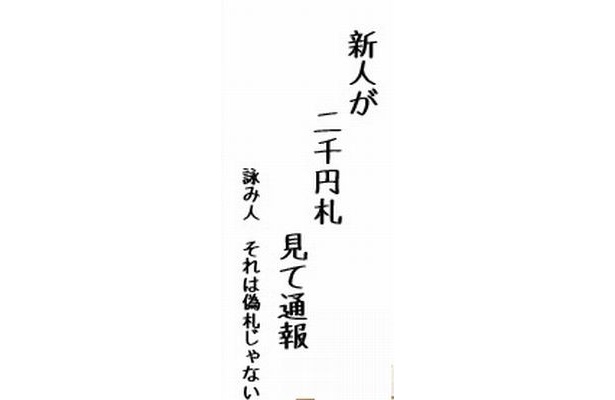 新人が
二千円札
見て通報
詠み人　それは偽札じゃない